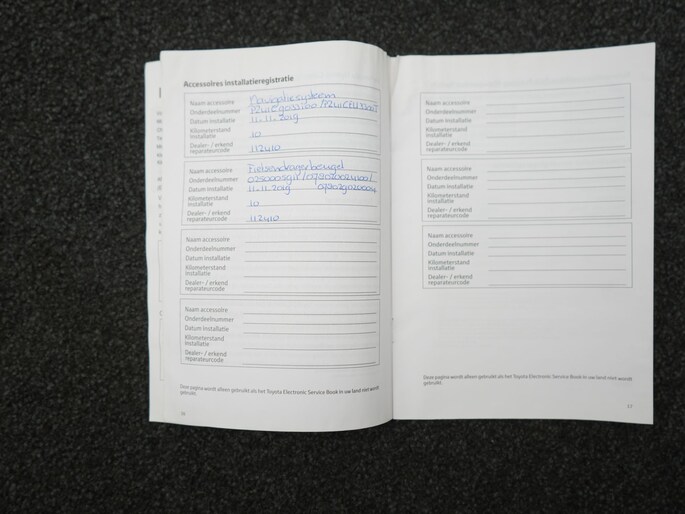 Accessoires installatieregistratie
Naam accessoire Navigatiesysteem
Onderdeelnummer
Datum installatie 11-11-2019
Kilometerstand installatie 10
Dealer- / erkend reparateurcode 112410
Naam accessoire Fietsendragerbeugel
Onderdeelnummer
Datum installatie 11-11-2019
Kilometerstand installatie 10
Dealer- / erkend reparateurcode 112410
Naam accessoire
Onderdeelnummer
Datum installatie
Kilometerstand installatie
Dealer- / erkend reparateurcode
Naam accessoire
Onderdeelnummer
Datum installatie
Kilometerstand installatie
Dealer- / erkend reparateurcode
Deze pagina wordt alleen gebruikt als het Toyota Electronic Service Book in uw land niet wordt
gebruikt.
Naam accessoire
Onderdeelnummer
Datum installatie
Kilometerstand installatie
Dealer- / erkend reparateurcode
Naam accessoire
Onderdeelnummer
Datum installatie
Kilometerstand installatie
Dealer- / erkend reparateurcode
Naam accessoire
Onderdeelnummer
Datum installatie
Kilometerstand installatie
Dealer- / erkend reparateurcode
Deze pagina wordt alleen gebruikt als het Toyota Electronic Service Book in uw land niet wordt
gebruikt.